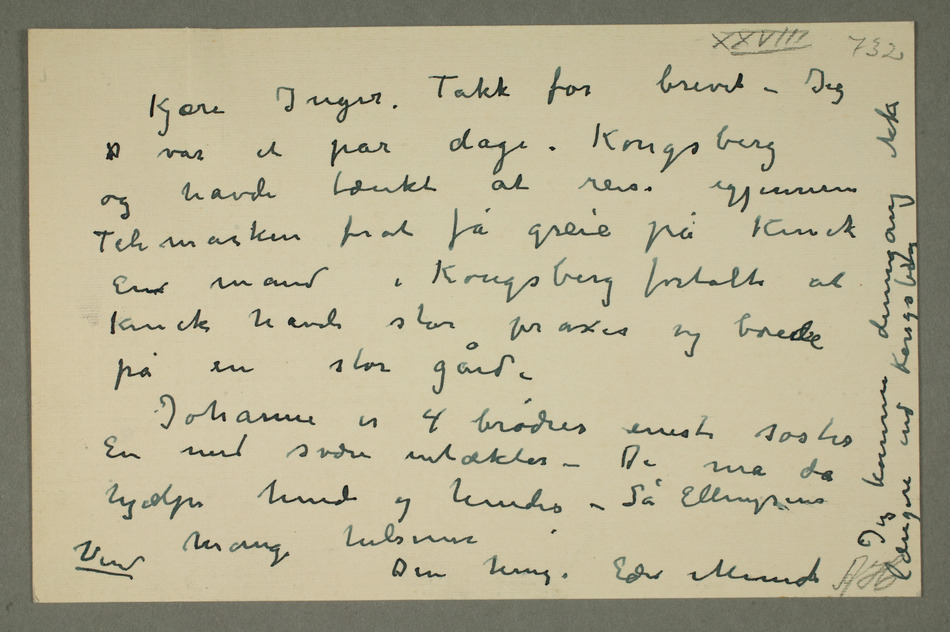 XXVIII 732
Kjære Inger. Takk for brevet – Jeg
var et par dage i Kongsberg
og havde tænkt at reise igjennem
Telemarken forat få greie på Kinck
En mand i Kongsberg fortalte at
Kinck havde stor praxis og boede
på en stor gård.
Johanne er 4 brødres eneste søster
En med svære indtækter – De må da
hjælpe hende og hendes – Så Ellingsens
Mange hilsener
Din heng. Edv Munch
Vend
Jeg kommer dennegang ikke
længere end Kongsberg